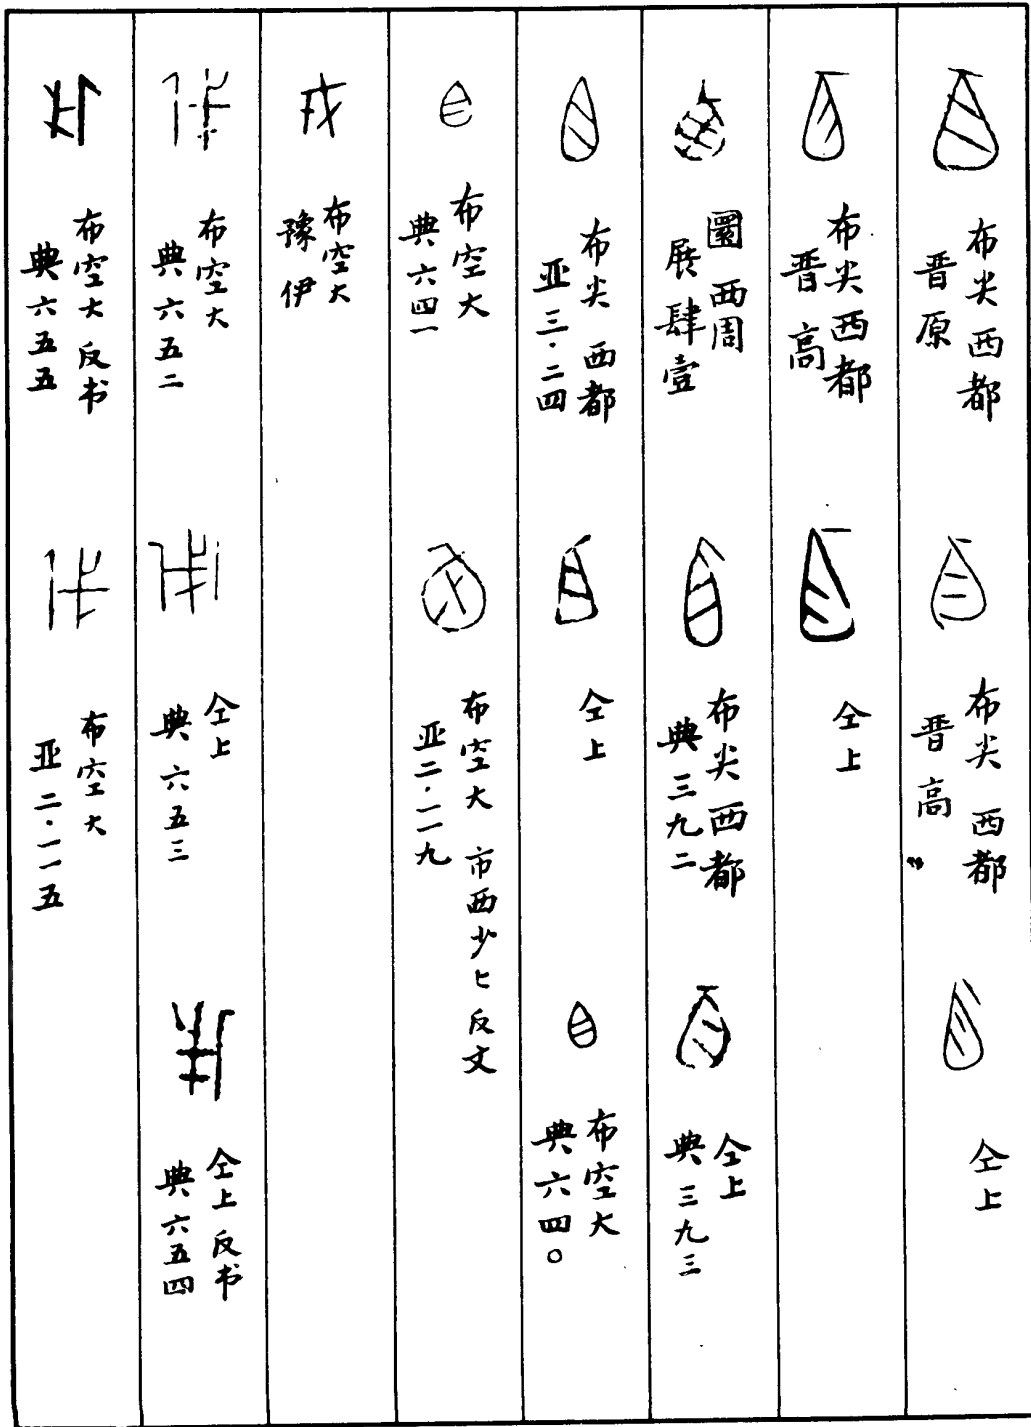 布尖 西都
晋原
布尖 西都
晋高
仝上
布尖西都
晋高
仝上
圜 西周
展肆壹
布尖西都
典三九二
仝上
典三九三
布尖 西都
亚三·二四
仝上
布空大
典六四〇
布空大
典六四一
布空大 市西少匕反文
亚二·一一九
布空大
豫伊
布空大
典六五二
仝上
典六五三
仝上反书
典六五四
布空大反书
典六五五
布空大
亚二·一一五